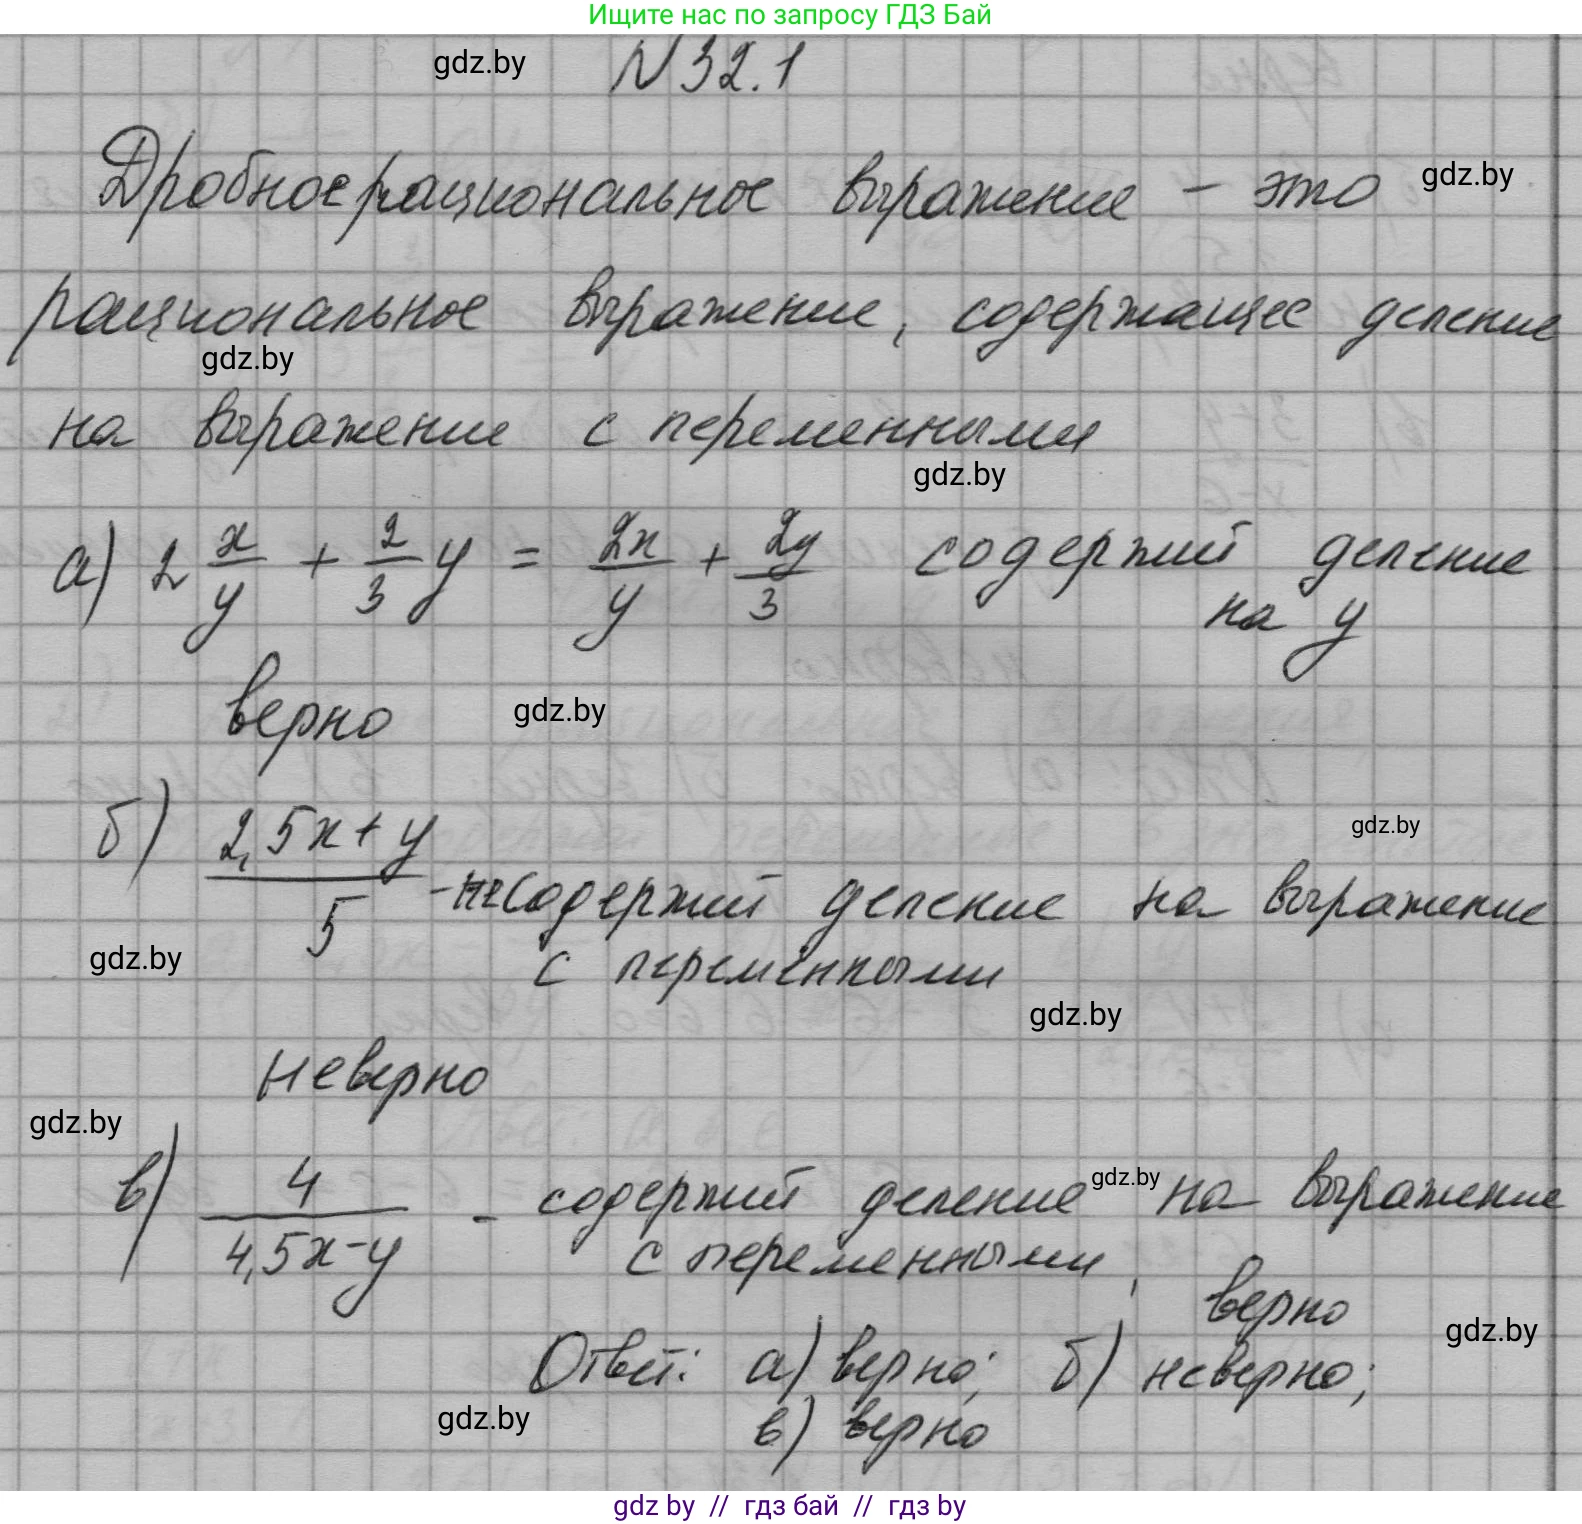 Ищите нас по запросу ГДЗ Бай
gdz.by
N 32.1
Дробное рациональное выражение – это
gdz.by
рациональное выражение, содержащее деление
gdz.by
на выражение с переменными
gdz.by
а) 2 x/y + 2/3 y = 2x/y + 2y/3 содержит деление
на y
верно
gdz.by
б) (2,5x+y)/5 - не содержит деление на выражение
gdz.by
с переменными
gdz.by
gdz.by
неверно
gdz.by
в) 4/(4,5x-y) - содержит деление на выражение
gdz.by
с переменными, верно
gdz.by
Ответ: а) верно; б) неверно;
в) верно
gdz.by
gdz by // гдз бай // гдз by